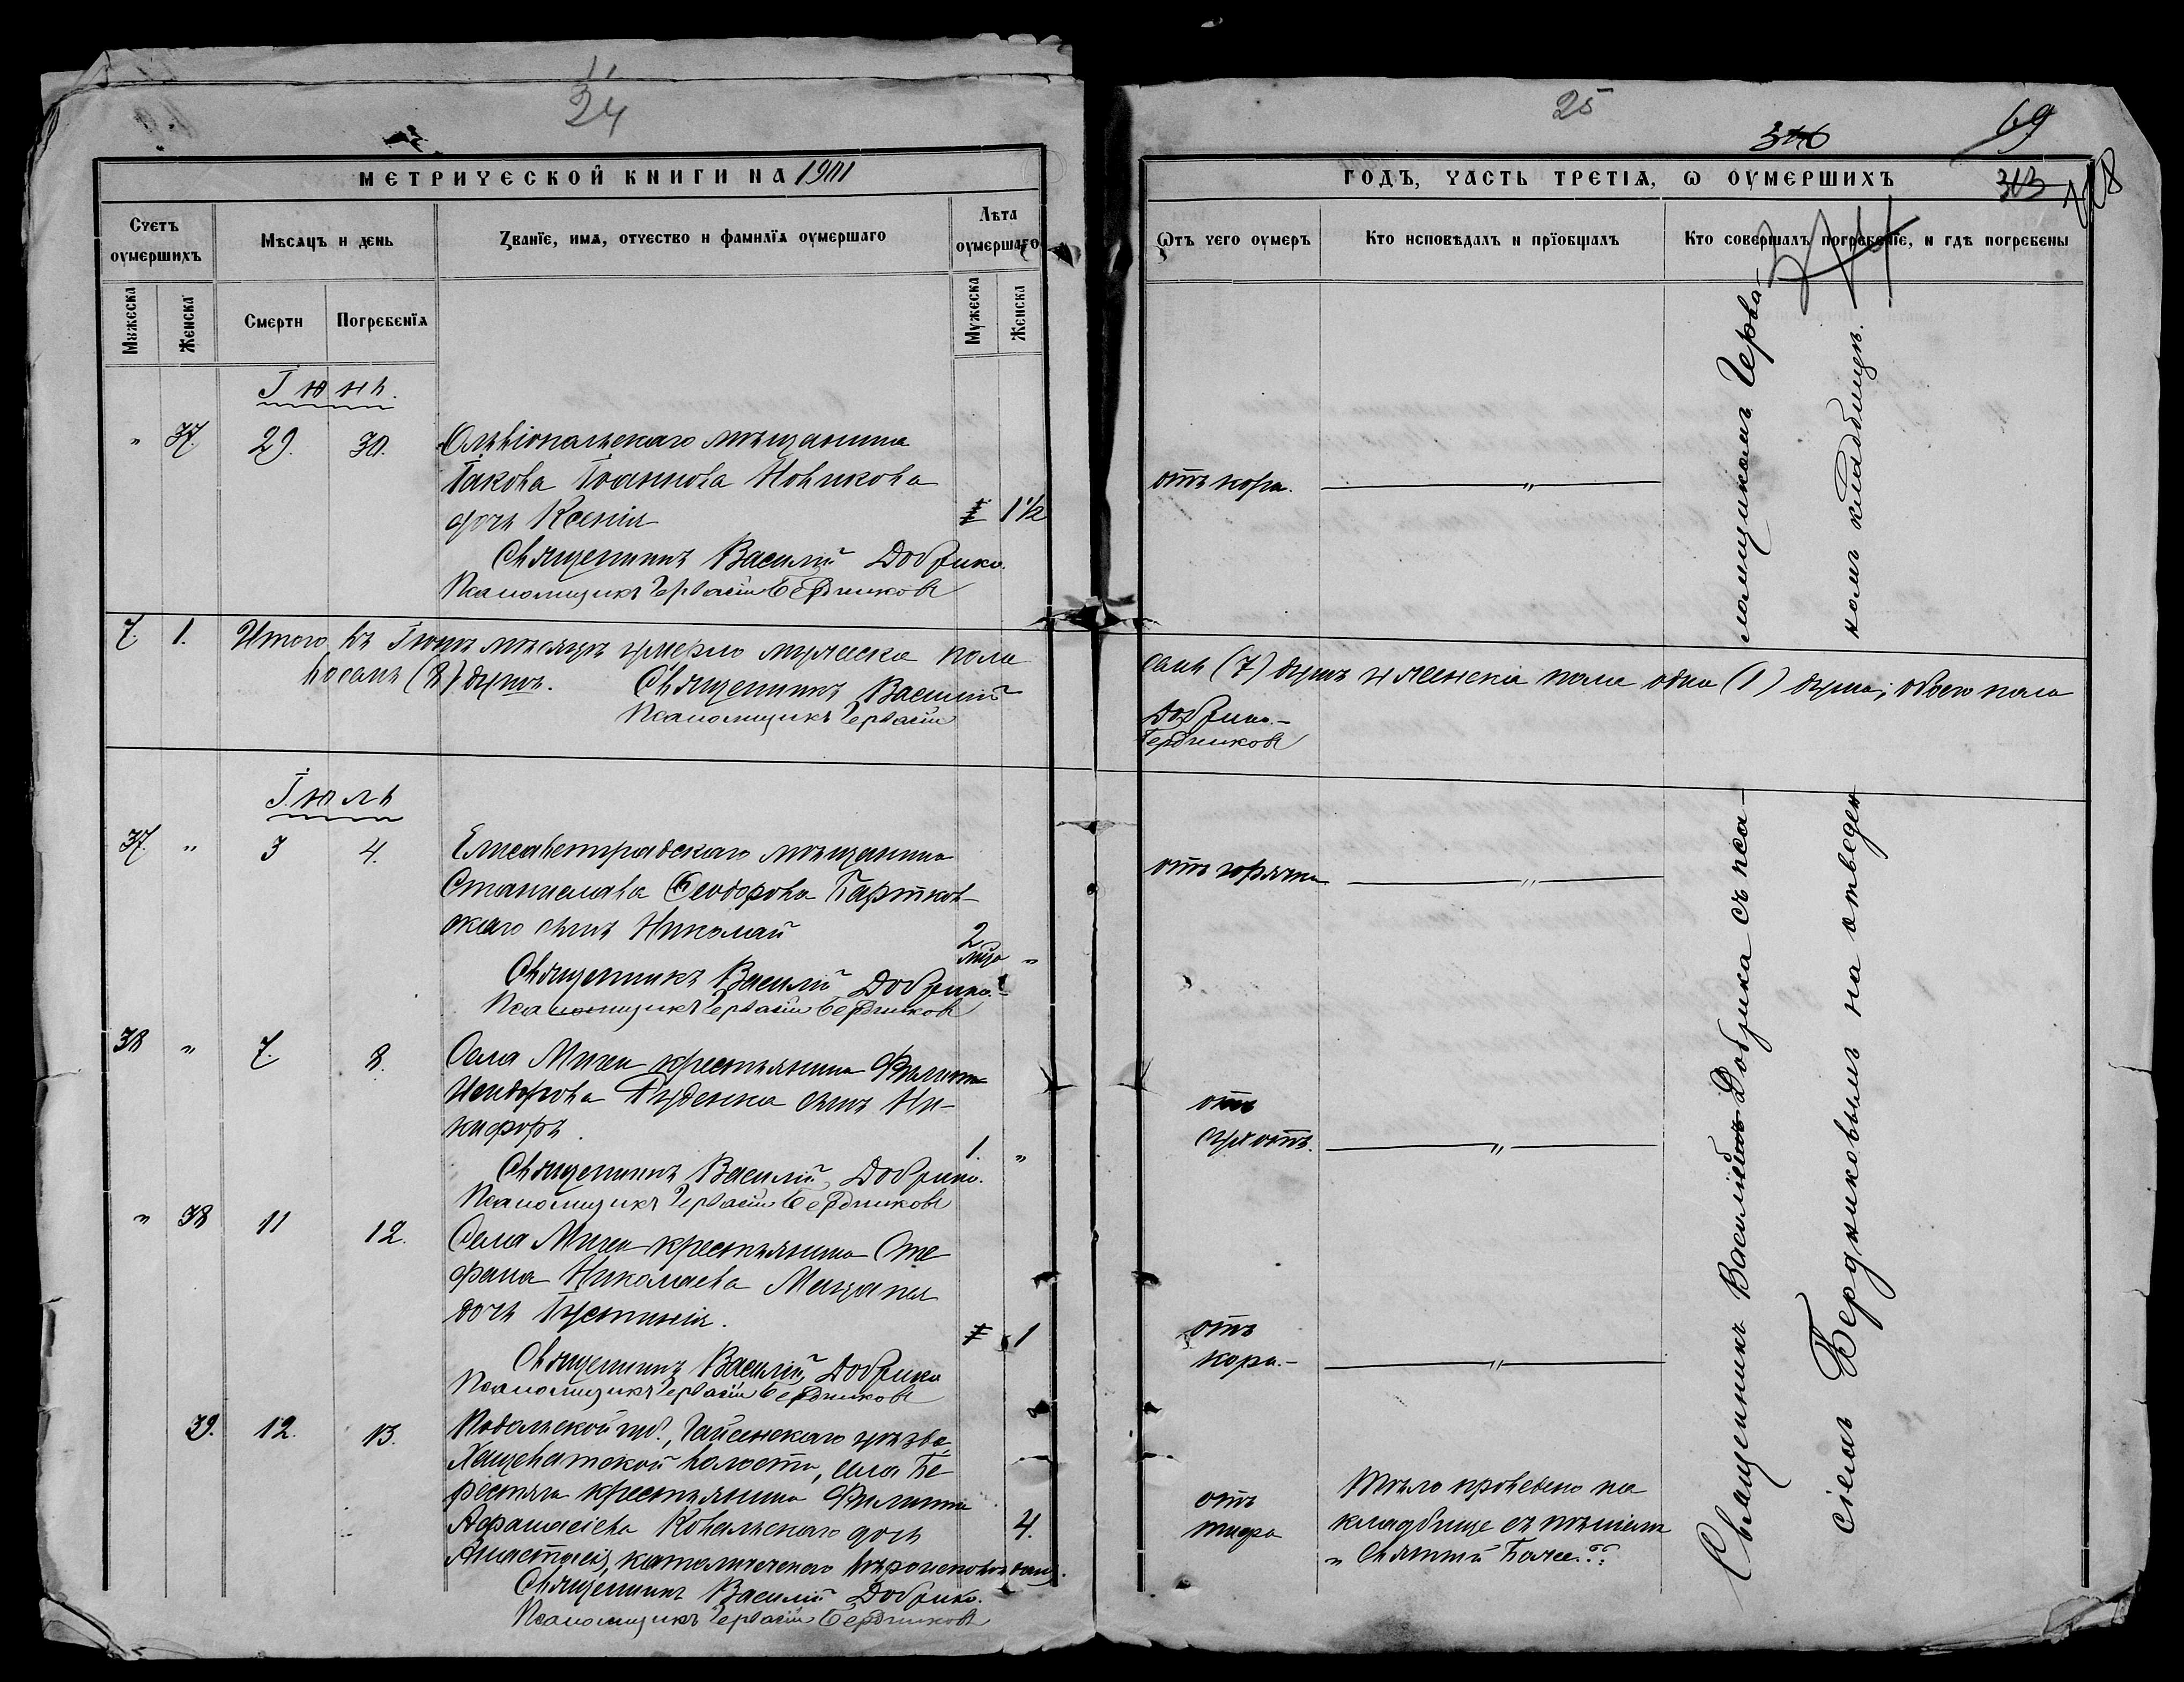 24
МЕТРИЧЕСКОЙ КНИГИ НА 1901
Счетъ оумершихъ
Мѣсяцъ и день
Званїе, имя, отчество и фамилїя оумершаго
Лѣта оумершаго
Мужеска
Женска
Смерти
Погребенїя
Мужеска
Женска
Іюнь.
" 37. 29. 30. Ольвіопольскаго мѣщанина
Іакова Іоаннова Новикова
дочь Ксенія 1 1/2
Священникъ Василій Добрика.
Псаломщикъ Гервасій Бердниковъ
7. 1. Итого въ Іюнѣ мѣсяцѣ умерло мужеска пола
восемь (8) душъ. Священникъ Василій
Псаломщикъ Гервасій
Іюль
37. " 3 4. Елисаветградскаго мѣщанина
Станислава Ѳеодорова Бартков-
скаго сынъ Николай 2 "
Священникъ Василій Добрика.
Псаломщикъ Гервасій Бердниковъ
38 " 7. 8. Села Мигеи крестьянина Филиппа
Исидорова Руденка сынъ Ни-
кифоръ. 1. "
Священникъ Василій Добрика.
Псаломщикъ Гервасій Бердниковъ
" 38 11 12. Села Мигеи крестьянина Сте
фана Николаева
дочь Іустинія. 1
Священникъ Василій Добрика
Псаломщикъ Гервасій Бердниковъ
39. 12. 13. Подольской губ., Гайсинскаго уѣзда,
Хащеватской волости, села Бе
рестяги крестьянина Филиппа
Афанасіева Ковальскаго дочь 4.
Анастасія, католическаго вѣроисповѣдан.
Священникъ Василій Добрика.
Псаломщикъ Гервасій Бердниковъ
25
346
69
313
ГОДЪ, ЧАСТЬ ТРЕТІЯ, Ѡ ОУМЕРШИХЪ
Ѿтъ чего оумеръ
Кто исповѣдалъ и прїобщалъ
Кто совершалъ погребенїе, и гдѣ погребены
отъ кори. "
ломщикомъ Герва-
номъ кладбищѣ.
семь (7) душъ и женска пола одна (1) душа; обоего пола
Добрика.-
Бердниковъ
отъ горячки "
отъ
сухотъ. "
отъ
кори.- "
отъ
тифа
Тѣло проведено на
кладбище съ пѣніемъ
" Святый Боже."
Священникъ Василій Добрика съ пса-
сіемъ Бердниковымъ на отведен